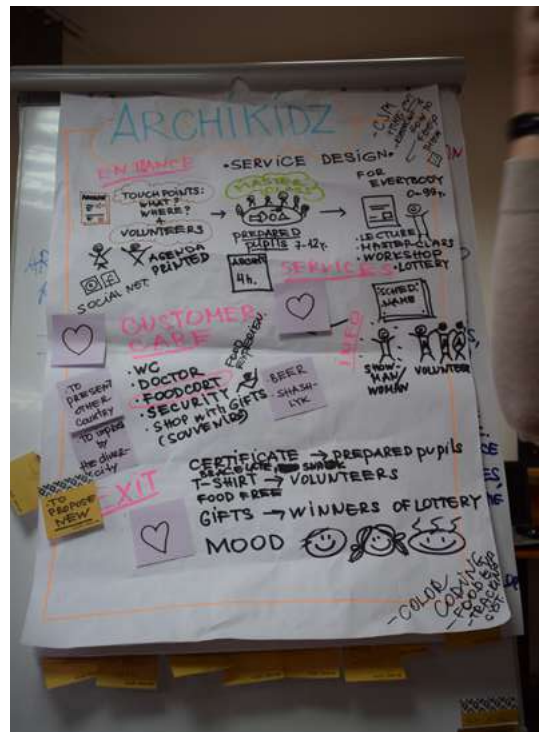 ARCHIKIDZ
ENTRANCE
• SERVICE DESIGN •
TOUCH POINTS:
WHAT?
WHERE?
+
VOLUNTEERS
AGENDA
PRINTED
SOCIAL NET.
MASTER
PREPARED
pupils 7-12y.
4h.
FOR
EVERYBODY
0-99y.
• LECTURE
• MASTER-CLASS
WORKSHOP
• LOTTERY
SERVICES
SCHED.
NAME
INFO
SHOW
MAN/
WOMAN
VOLUNTEER
CUSTOMER
CARE
• WC
• DOCTOR
• FOODCORT
• SECURITY
• SHOP WITH GIFTS
(SOUVENIRS)
FOOD
• BEER
- SHASH-
LYK
• TO
PRESENT
OTHER
COUNTRY
the diver-
city
TO
PROPOSE
NEW
EXIT
CERTIFICATE → PREPARED pupils
T-SHIRT → VOLUNTEERS
FOOD FREE
GIFTS → WINNERS OF LOTTERY
MOOD
- COLOR
CODING